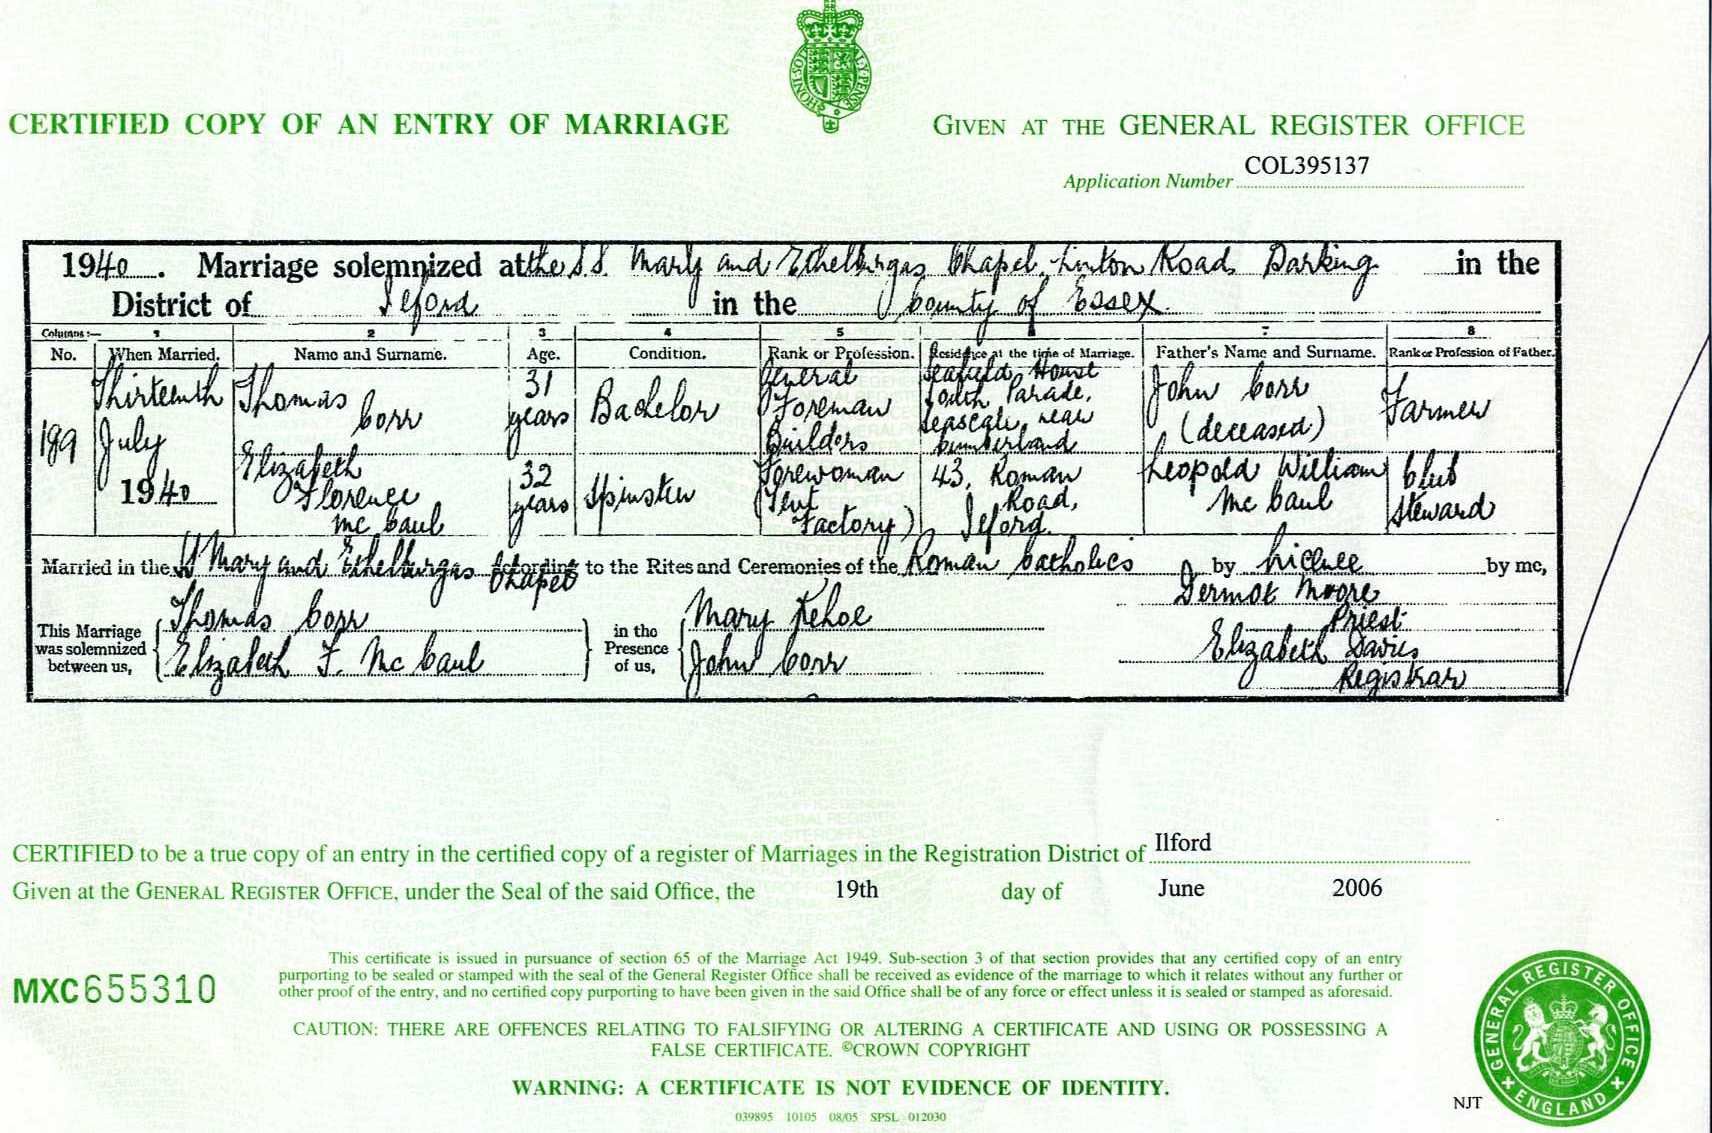 CERTIFIED COPY OF AN ENTRY OF MARRIAGE
GIVEN AT THE GENERAL REGISTER OFFICE
Application Number COL395137
1940. Marriage solemnized at the S.S. Mary and Ethelburgas Chapel, Linton Road, Barking in the
District of Ilford in the County of Essex.
Columns:— 1 2 3 4 5 6 7 8
No. When Married. Name and Surname. Age. Condition. Rank or Profession. Residence at the time of Marriage. Father's Name and Surname. Rank or Profession of Father.
189
Thirteenth
July
1940
Thomas
Corr
31
years
Bachelor
General
Foreman
Builders
Seafield House
South Parade,
Seascale near
Cumberland
John Corr
(deceased)
Farmer
Elizabeth
Florence
Mc Caul
32
years
Spinster
Forewoman
(Tent
Factory)
43, Roman
Road,
Ilford.
Leopold William
Mc Caul
Club
Steward
Married in the St Mary and Ethelburgas Chapel according to the Rites and Ceremonies of the Roman Catholics by Licence by me,
This Marriage
was solemnized
between us,
Thomas Corr
Elizabeth F. Mc Caul
in the
Presence
of us,
Mary Kehoe
John Corr
Dermot Moore
Priest
Elizabeth Davies
Registrar
CERTIFIED to be a true copy of an entry in the certified copy of a register of Marriages in the Registration District of Ilford
Given at the GENERAL REGISTER OFFICE, under the Seal of the said Office, the 19th day of June 2006
MXC655310
This certificate is issued in pursuance of section 65 of the Marriage Act 1949. Sub-section 3 of that section provides that any certified copy of an entry
purporting to be sealed or stamped with the seal of the General Register Office shall be received as evidence of the marriage to which it relates without any further or
other proof of the entry, and no certified copy purporting to have been given in the said Office shall be of any force or effect unless it is sealed or stamped as aforesaid.
CAUTION: THERE ARE OFFENCES RELATING TO FALSIFYING OR ALTERING A CERTIFICATE AND USING OR POSSESSING A
FALSE CERTIFICATE. ©CROWN COPYRIGHT
WARNING: A CERTIFICATE IS NOT EVIDENCE OF IDENTITY.
039895 10105 08/05 SPSL 012030
NJT
GENERAL REGISTER OFFICE
ENGLAND